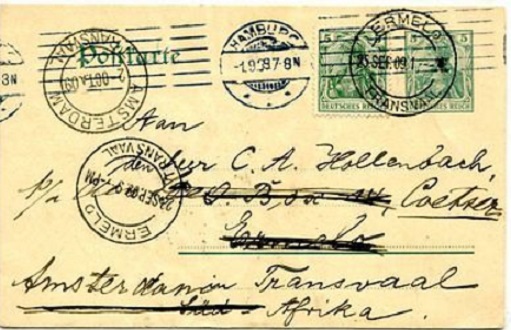 Postkarte
HAMBURG
-1.9.09 7-8N
5 5
DEUTSCHES REICH
ERMELO
25 SEP. 09
TRANSVAAL
AMSTERDAM
TRANSVAAL
2 OCT 09
Aan
den Heer C. A. Hollenbach,
p/a P.O. Box Coetser
ERMELO
TRANSVAAL
24 SEP 09
PM
Ermelo
Amsterdam Transvaal
Süd-Afrika.